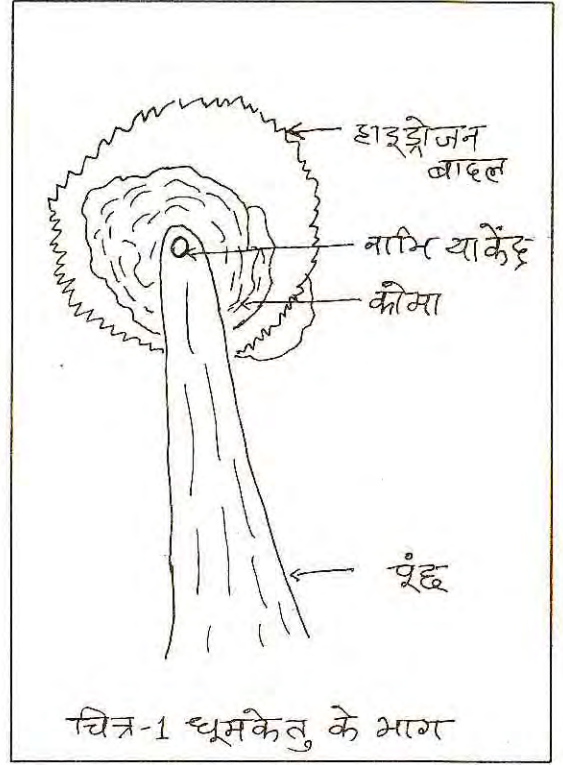 हाइड्रोजन
बादल
नाभि या केंद्र
कोमा
पूंछ
चित्र-1 धूमकेतु के भाग